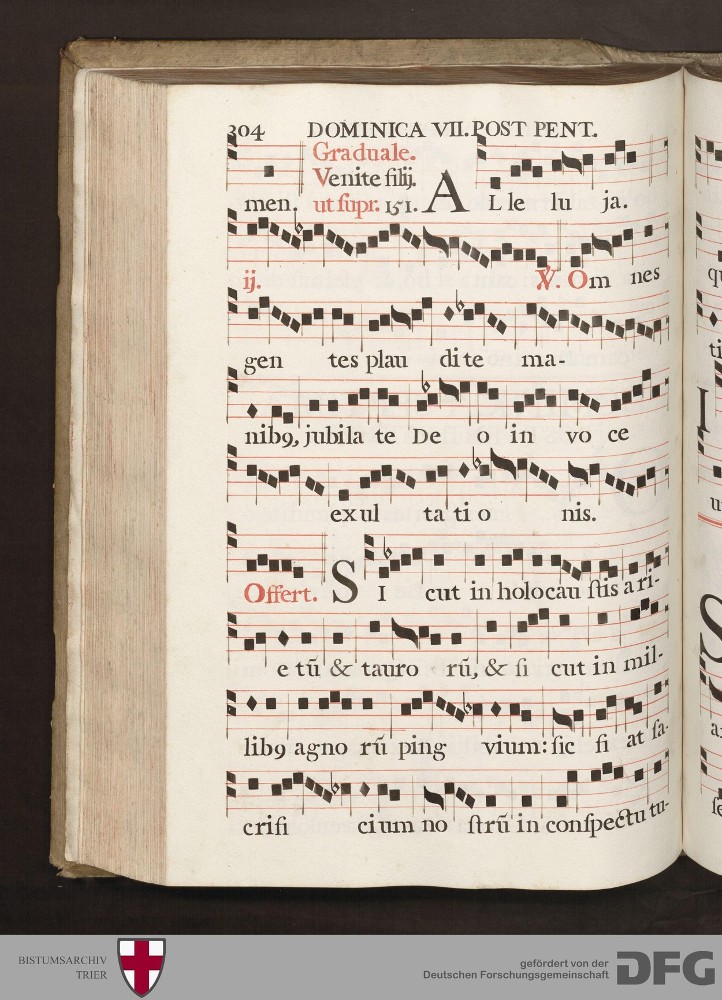 304 DOMINICA VII. POST PENT.
Graduale.
Venite filij.
men. ut supr. 151. A L le lu ja.
ij. ℣. Om nes
gen tes plau di te ma-
nib9, jubila te De o in vo ce
exul ta ti o nis.
Offert. S I cut in holocau ſtis a ri-
e tū & tauro rū, & ſi cut in mil-
lib9 agno rū ping vium: ſic ſi at ſa-
criſi cium no ſtrū in conſpectu tu-
BISTUMSARCHIV
TRIER
gefördert von der
Deutschen Forschungsgemeinschaft
DFG